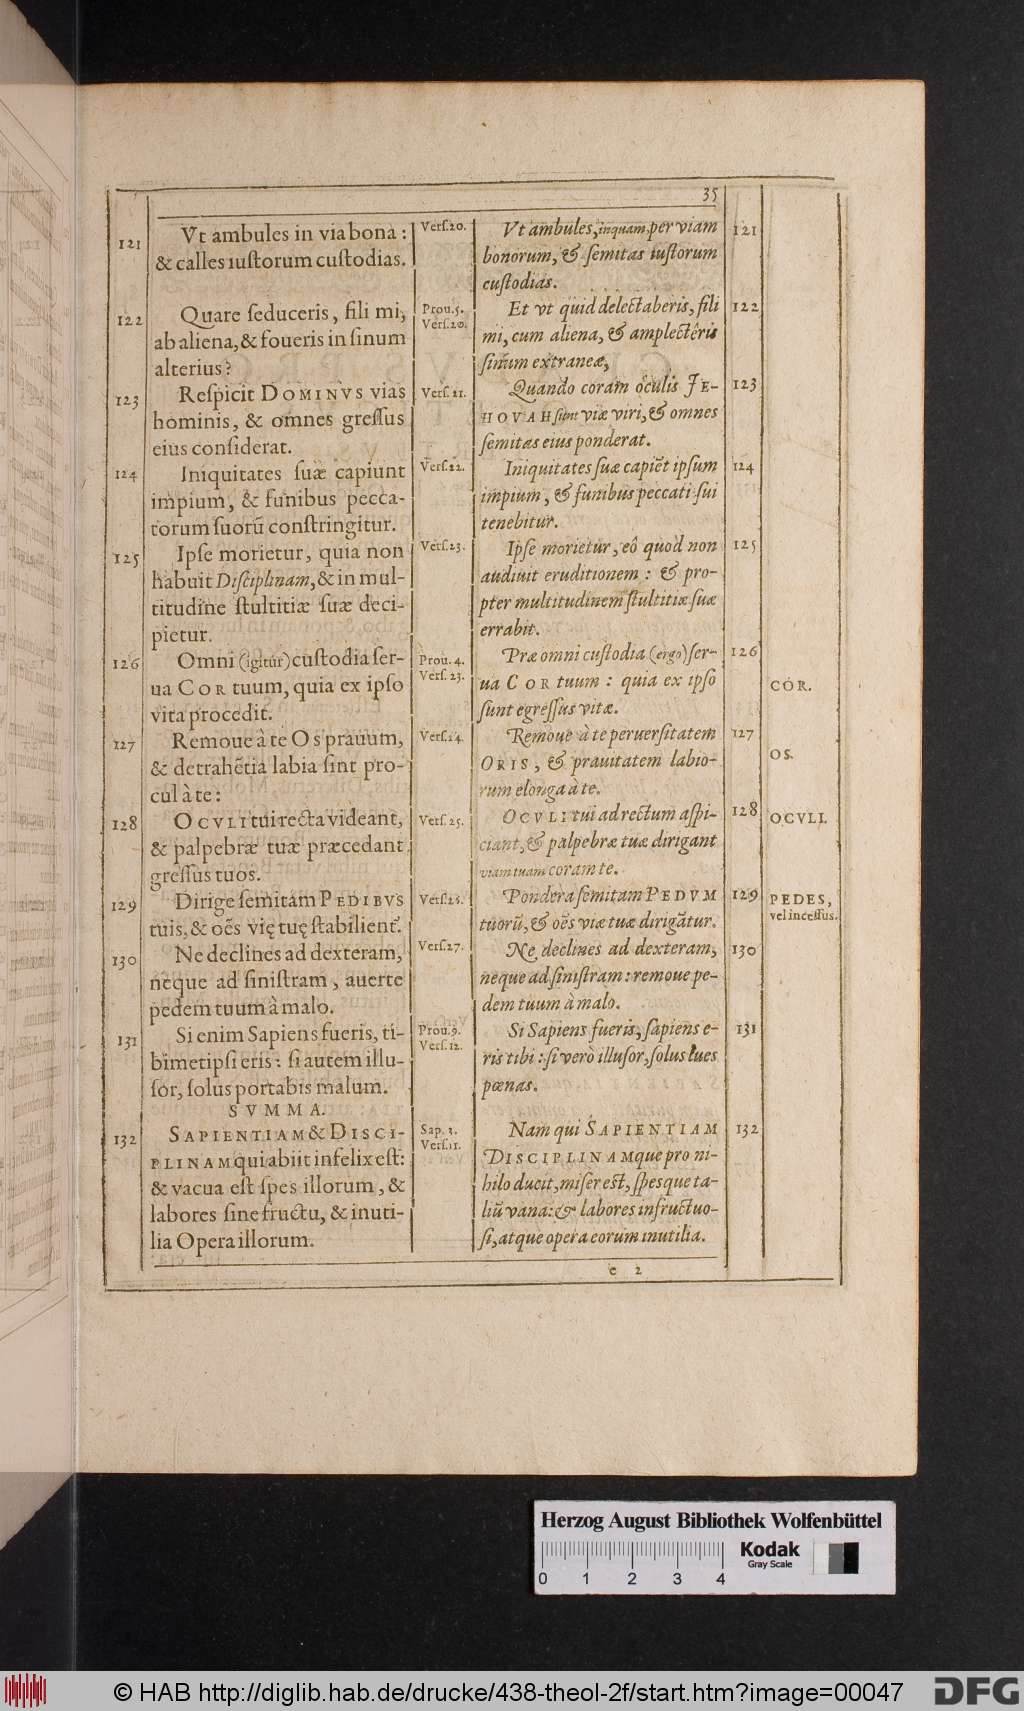 35
121
Vt ambules in via bona :
& calles iustorum custodias.
122
Quare seduceris, fili mi,
ab aliena, & foueris in sinum
alterius?
123
Respicit DOMINVS vias
hominis, & omnes gressus
eius considerat.
124
Iniquitates suæ capiunt
impium, & funibus pecca-
torum suorũ constringitur.
125
Ipse morietur, quia non
habuit Disciplinam, & in mul-
titudine stultitiæ suæ deci-
pietur.
126
Omni (igitur) custodia ser-
ua COR tuum, quia ex ipso
vita procedit.
127
Remoue à te Os prauum,
& detrahẽtia labia sint pro-
cul à te :
128
OCVLI tui recta videant,
& palpebræ tuæ præcedant
gressus tuos.
129
Dirige semitam PEDIBVS
tuis, & oẽs vię tuę stabilient̃.
130
Ne declines ad dexteram,
neque ad sinistram, auerte
pedem tuum à malo.
131
Si enim Sapiens fueris, ti-
bimetipsi eris : si autem illu-
sor, solus portabis malum.
SVMMA.
132
SAPIENTIAM & DISCI-
PLINAM qui abiit infelix est:
& vacua est spes illorum, &
labores sine fructu, & inuti-
lia Opera illorum.
Vers.20.
Prou.5.
Vers.20.
Vers.21.
Vers.22.
Vers.23.
Prou. 4.
Vers.23.
Vers.24.
Vers.25.
Vers.26.
Vers.27.
Prou.9.
Vers.12.
Sap. 3.
Vers.11.
Vt ambules, inquam, per viam
bonorum, & semitas iustorum
custodias.
Et vt quid delectaberis, fili
mi, cum aliena, & amplectêris
sinum extraneæ,
Quando coram oculis JE-
HOVAH sunt viæ viri, & omnes
semitas eius ponderat.
Iniquitates suæ capiẽt ipsum
impium, & funibus peccati sui
tenebitur.
Ipse morietur, eô quod non
audiuit eruditionem : & pro-
pter multitudinem stultitiæ suæ
errabit.
Præ omni custodia (ergo) ser-
ua COR tuum : quia ex ipso
sunt egressus vitæ.
Remoue à te peruersitatem
ORIS, & prauitatem labio-
rum elonga à te.
OCVLI tui ad rectum aspi-
ciant, & palpebræ tuæ dirigant
viam tuam coram te.
Pondera semitam PEDVM
tuorũ, & oẽs viæ tuæ dirigãtur.
Ne declines ad dexteram,
neque ad sinistram : remoue pe-
dem tuum à malo.
Si Sapiens fueris, sapiens e-
ris tibi : si verò illusor, solus lues
pœnas.
Nam qui SAPIENTIAM
DISCIPLINAMque pro ni-
hilo ducit, miser est, spesque ta-
liũ vana: & labores infructuo-
si, atque opera eorum inutilia.
121
122
123
124
125
126
127
128
129
130
131
132
COR.
OS.
OCVLI.
PEDES,
vel incessus.
e 2
Herzog August Bibliothek Wolfenbüttel
Kodak
Gray Scale
0 1 2 3 4
© HAB http://diglib.hab.de/drucke/438-theol-2f/start.htm?image=00047
DFG